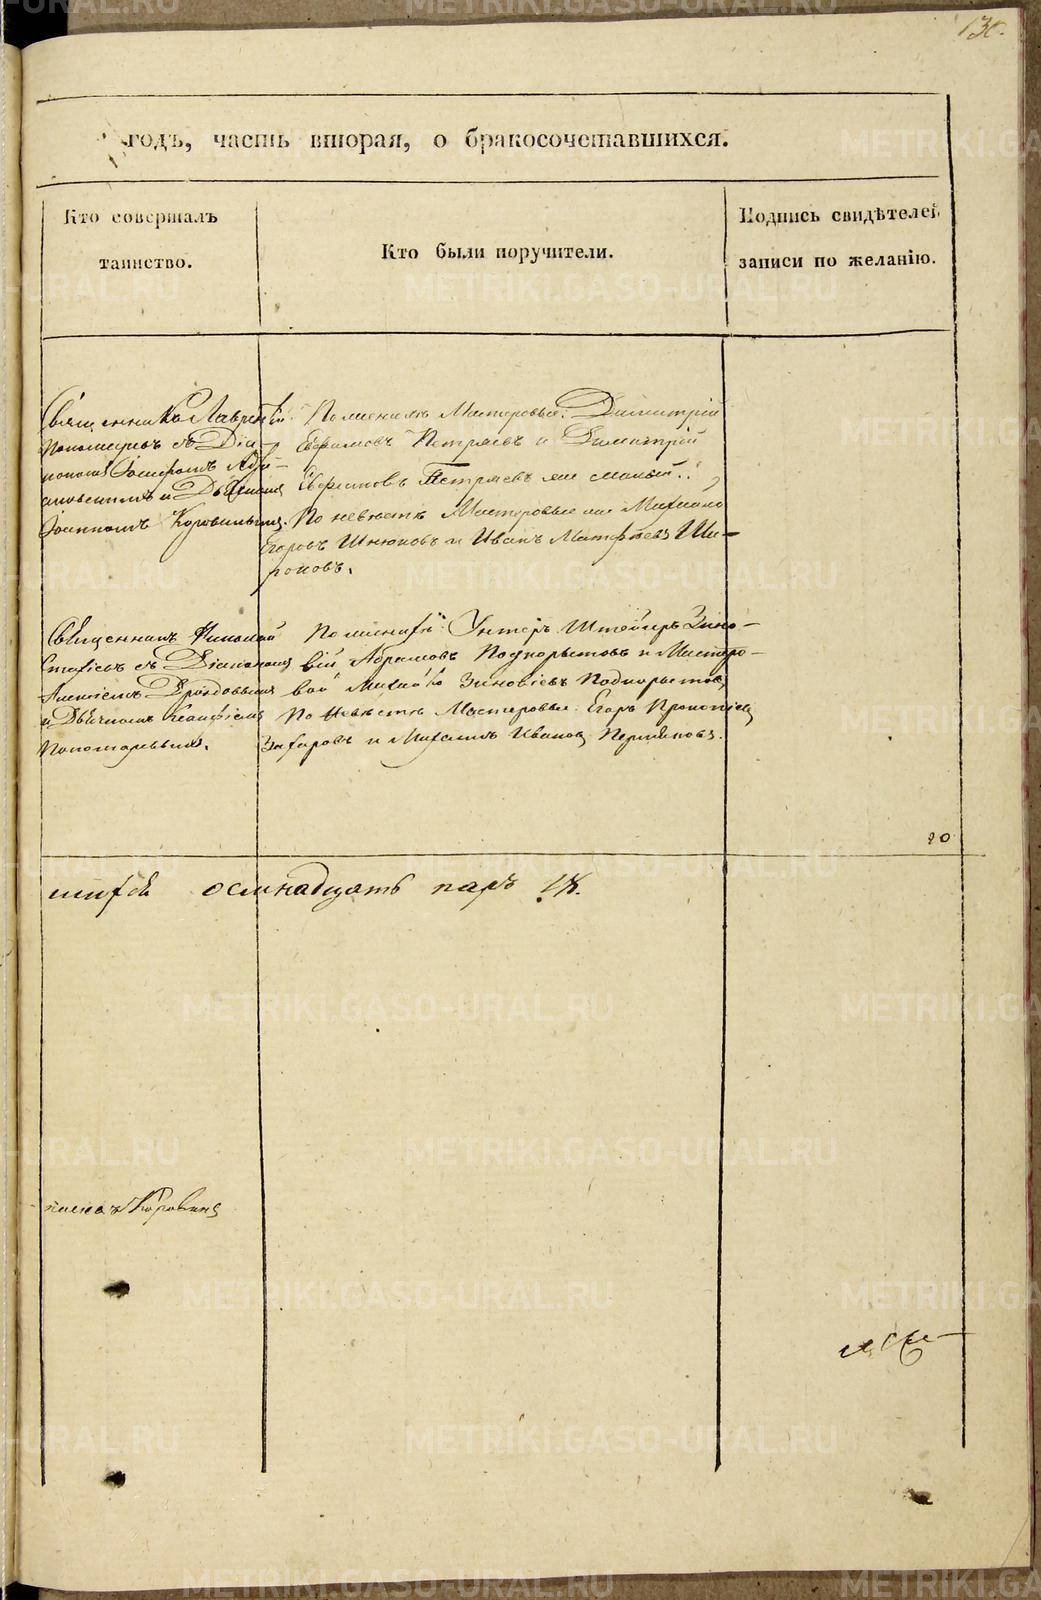 130.
годъ, часть вторая, о бракосочетавшихся.
Кто совершалъ
таинство.
Кто были поручители.
Подпись свидѣтелей
записи по желанію.
Священникъ Лаврентій
Пономаревъ съ Діа-
кономъ Іосифомъ
и Дьячкомъ
Іоанномъ Коровинымъ.
По женихѣ Мастеровые: Димитрій
Евфимовъ Петряевъ и Димитрій
Евфимовъ Петряевъ же малый;
По невѣстѣ Мастеровые же Михаило
Егоровъ Шнюковъ и Иванъ Матфѣевъ Ши-
роковъ.
Священникъ Николай
съ Діакономъ
Алексѣемъ Дроздовымъ
и Дьячкомъ
Пономаревымъ.
По женихѣ: Унтеръ Штейгеръ Зино-
вій Абрамовъ Подкорытовъ и Мастеро-
вой Михайло Зиновіевъ Подкорытовъ,
По Невѣстѣ Мастеровые Егоръ Прокопіевъ
Захаровъ и Михаилъ Ивановъ Пермяковъ.
20
осмнадцать паръ 18.
Коровинъ
METRIKI.GASO-URAL.RU